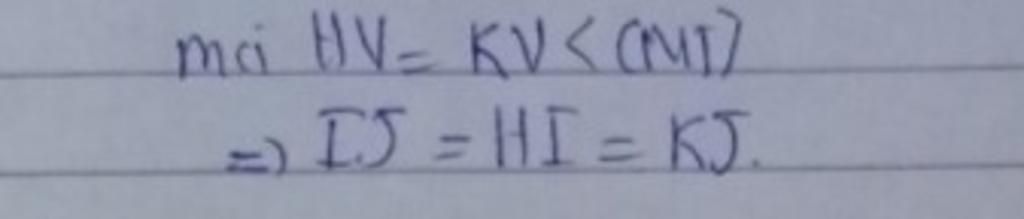 mà HV = KV < (CMT)
=> IJ = HI = KJ.